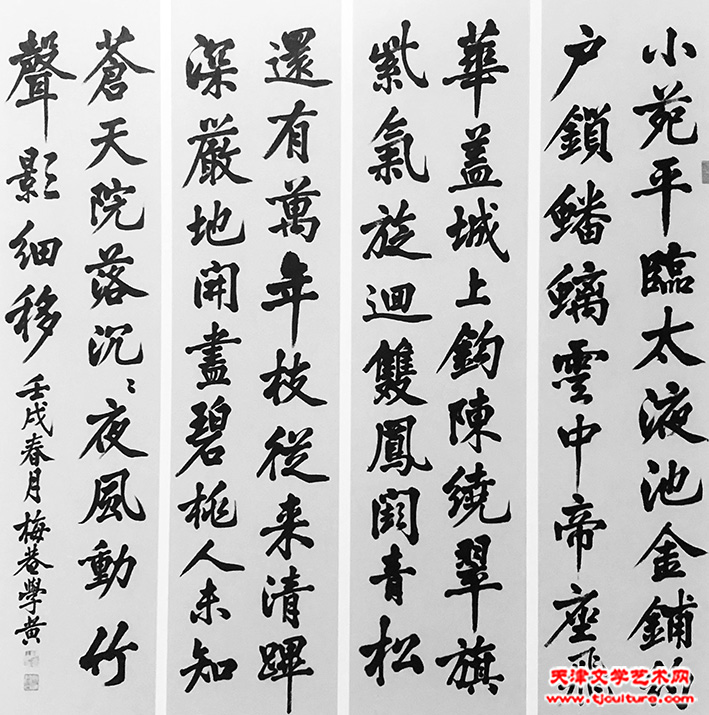 小苑平臨太液池金鋪約
户鎖蟠螭雲中帝座飛
華蓋城上鈎陳繞翠旗
紫氣旋迴雙鳳闕青松
還有萬年枝從来清蹕
深嚴地開盡碧桃人未知
蒼天院落沉〻夜風動竹
聲影細移
壬戌春月梅菴學黄
天津文学艺术网
www.tjculture.com